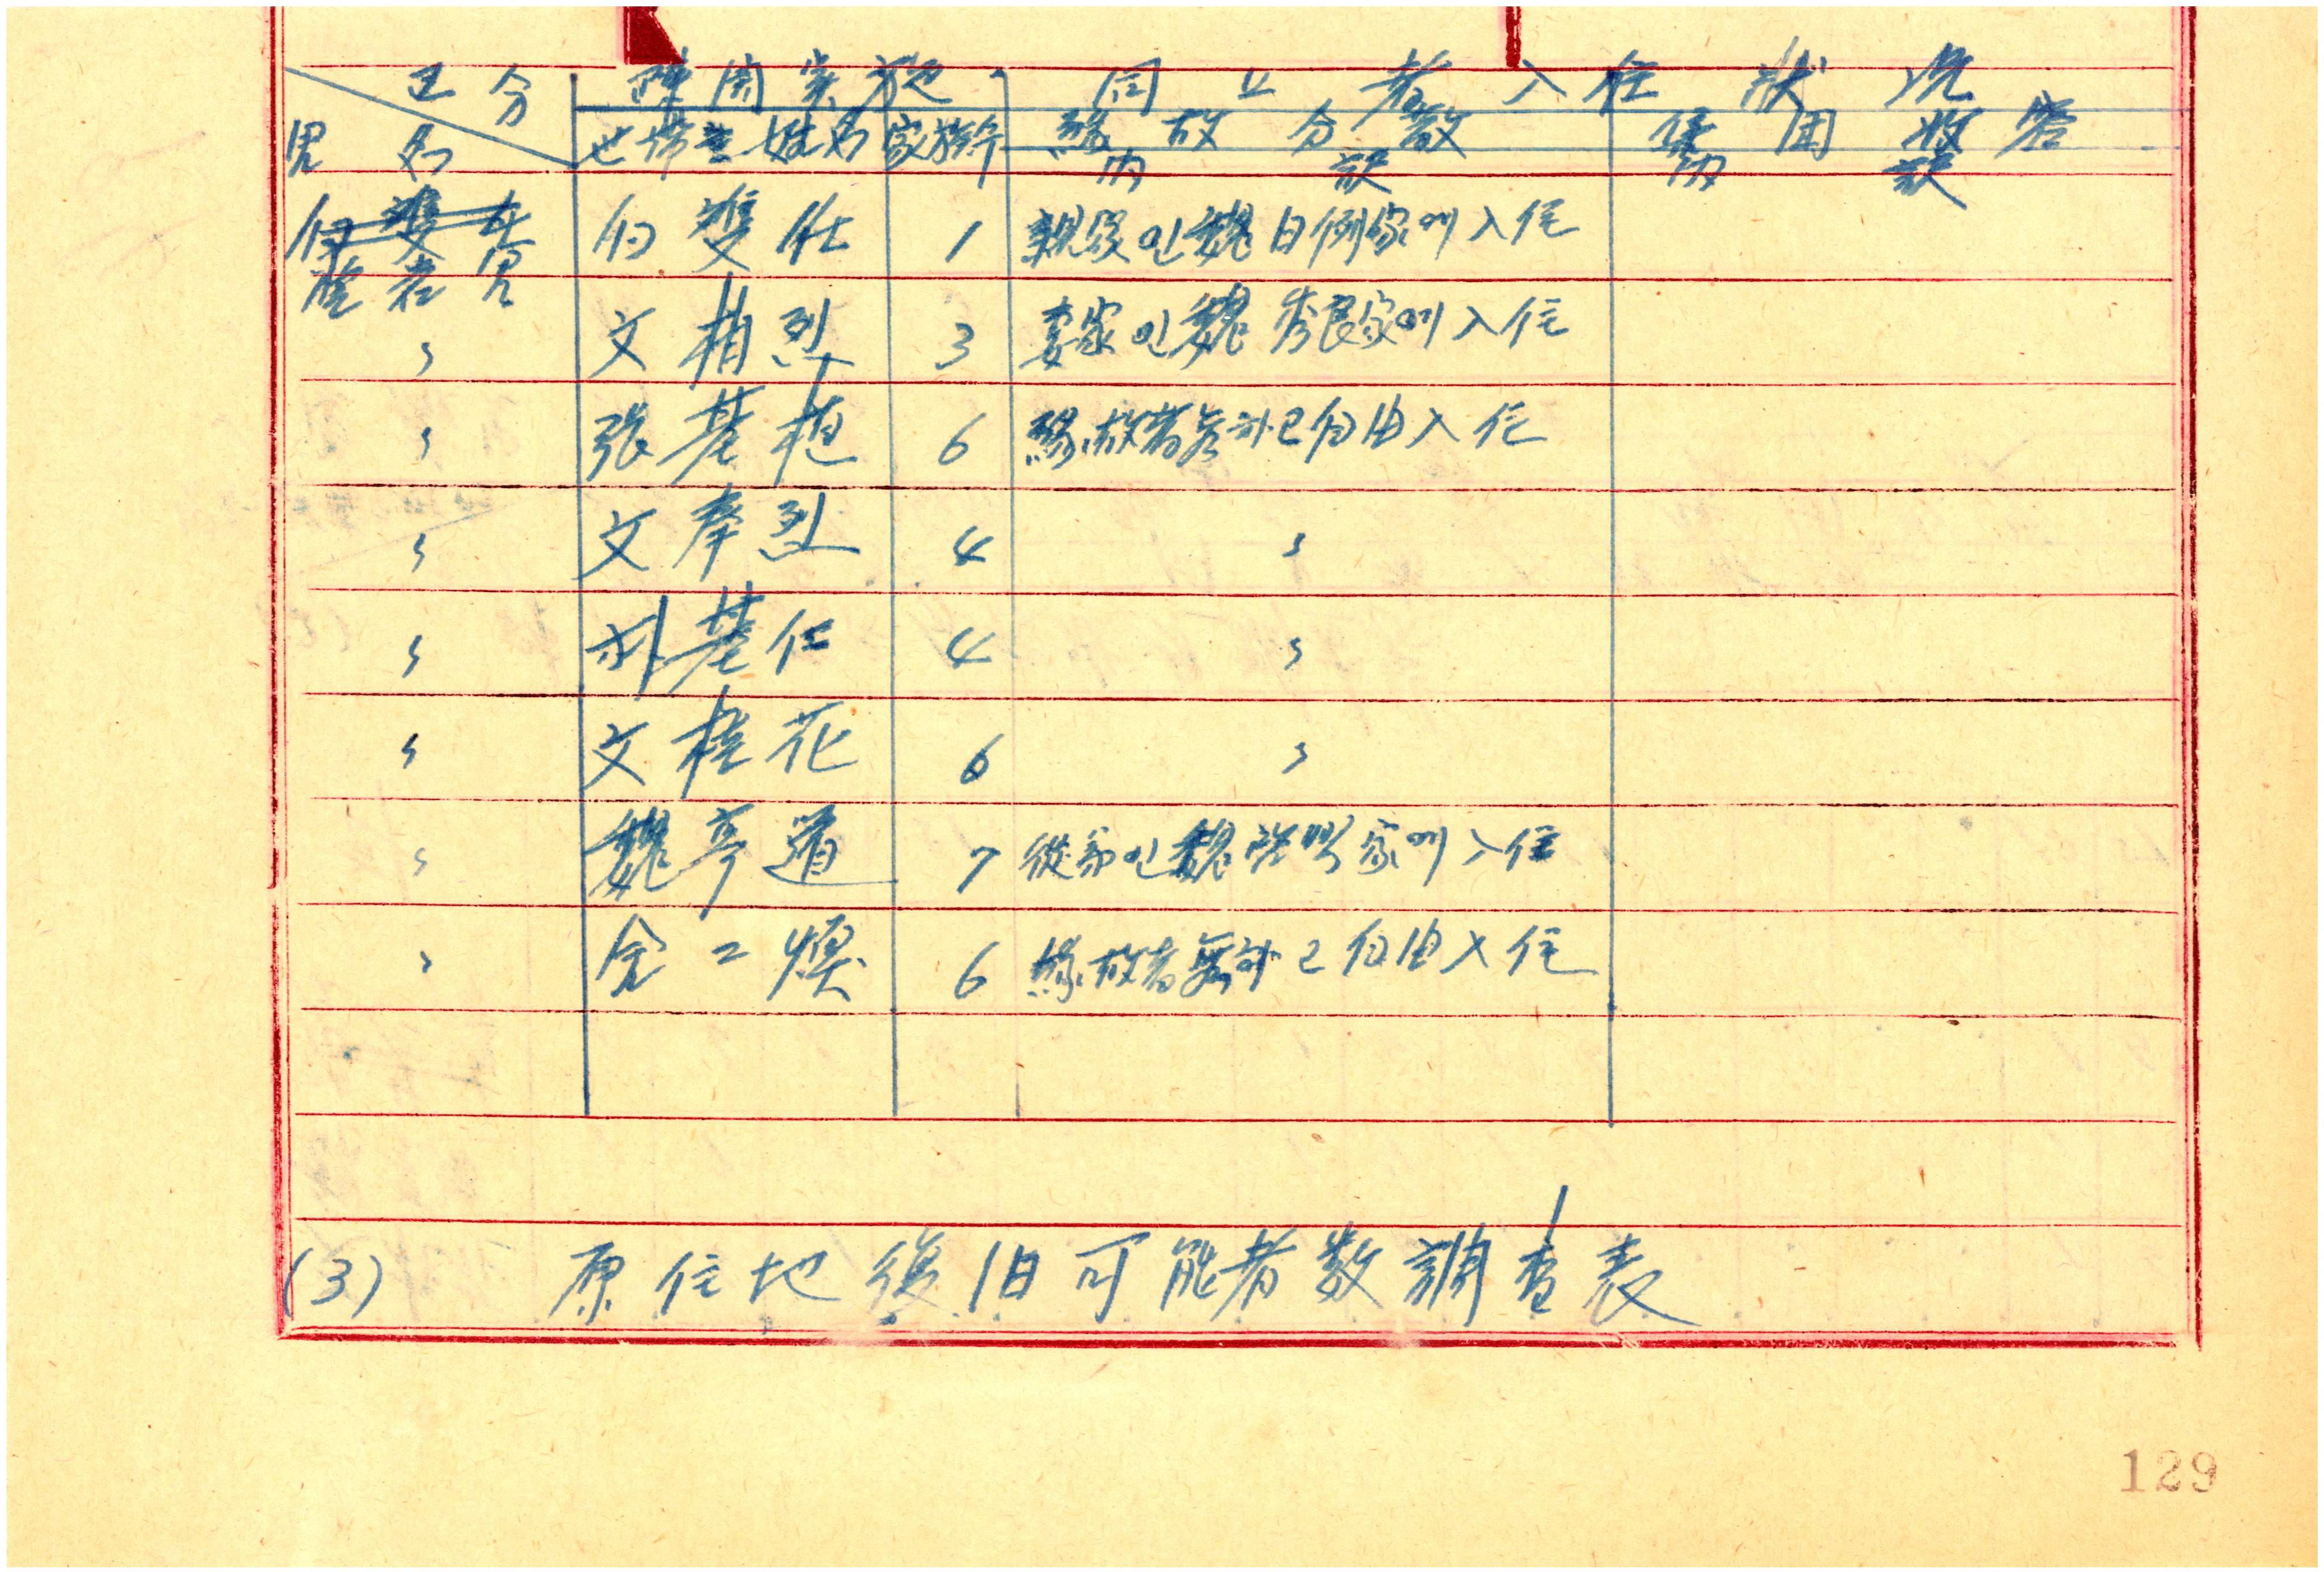 区分 疎開実施 同上者入住状況
里名 世帯主姓名 家族数 縁故分散 集団收容
内訳 内訳
白雙仕 1 親家인魏日例家에入住
〃 文相烈 3 妻家인魏秀良家에入住
〃 張基植 6 縁故者無하고自由入住
〃 文奉烈 4 〃
〃 朴基仁 4 〃
〃 文桂花 6 〃
〃 魏亨道 7 從弟인魏 家에入住
〃 金二煥 6 縁故者無하고自由入住
(3) 原住地復旧可能者数調査表
129